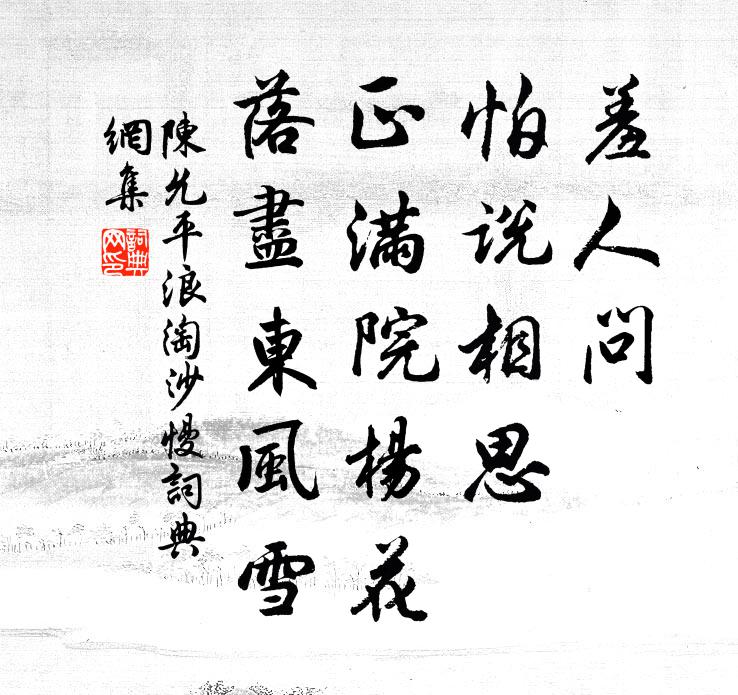 羞人問
怕説相思
正滿院楊花
落盡東風雪
陳允平浪淘沙慢詞典
網集
詞典
网印